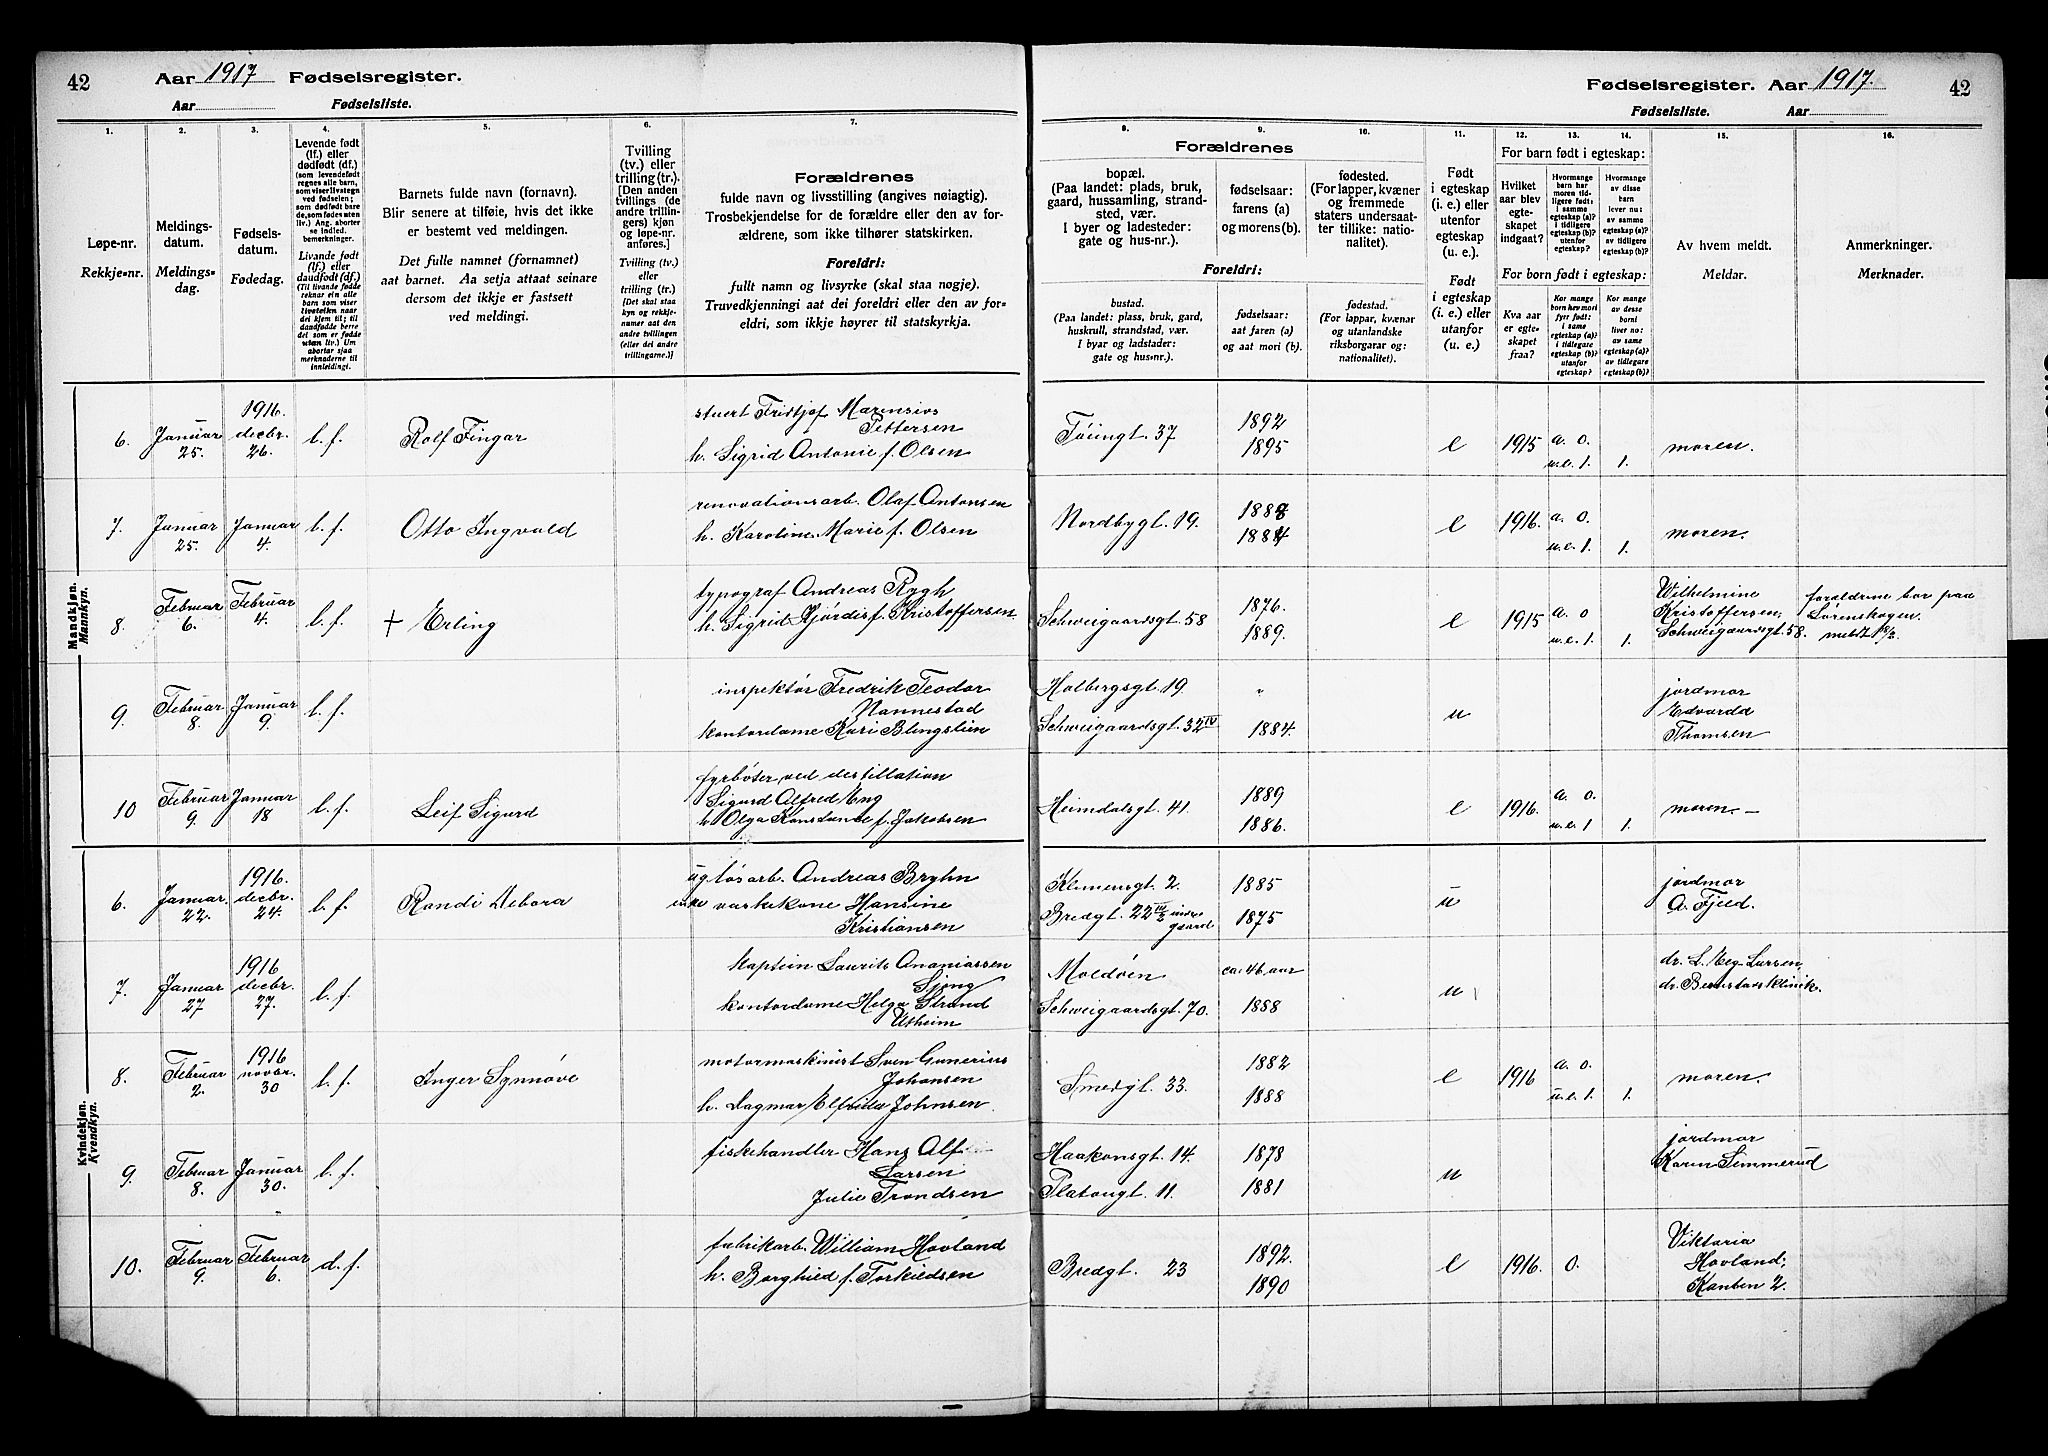 42
Aar 1917 Fødselsregister.
Aar Fødselsliste.
1.
2.
3.
4.
5.
6.
7.
Løpe-nr.
Rekkje-nr.
Meldings-
datum.
Meldings-
dag.
Fødsels-
datum.
Fødedag.
Levende født
(lf.) eller
dødfødt (df.)
(som levendefødt
regnes alle barn,
som viser livstegn
ved fødselen;
som dødfødt bare
de, som fødes uten
liv.) Ang. aborter
se indled.
bemerkninger.
Livande født
(lf.) eller
daudfødt (df.)
(Til livande fødde
reknar ein alle
barn som viser
livsteikn naar
dei kjem til; til
daudfødde berre
dei som er fødde
utan liv.) Um
abortar sjaa
merknaderne til
innleidingi.
Barnets fulde navn (fornavn).
Blir senere at tilføie, hvis det ikke
er bestemt ved meldingen.
Det fulle namnet (fornamnet)
aat barnet. Aa setja attaat seinare
dersom det ikkje er fastsett
ved meldingi.
Tvilling
(tv.) eller
trilling (tr.).
[Den anden
tvillings (de
andre trillin-
gers) kjøn
og løpe-nr.
anføres.]
Tvilling (tv.)
eller
trilling (tr.)
[Det skal staa
kyn og rekkje-
numer aat den
andre tvillingen
(eller dei andre
trillingarne.)]
Forældrenes
fulde navn og livsstilling (angives nøiagtig).
Trosbekjendelse for de forældre eller den av for-
ældrene, som ikke tilhører statskirken.
Foreldri:
fullt namn og livsyrke (skal staa nøgje).
Truvedkjenningi aat dei foreldri eller den av for-
eldri, som ikkje høyrer til statskyrkja.
Fødselsregister. Aar 1917.
42
Fødselsliste. Aar
8.
9.
10.
11.
12.
13.
14.
15.
16.
Forældrenes
bopæl.
(Paa landet: plads, bruk,
gaard, hussamling, strand-
sted, vær.
I byer og ladesteder:
gate og hus-nr.).
fødselsaar:
farens (a)
og morens (b).
fødested.
(For lapper, kvæner
og fremmede
staters undersaat-
ter tillike: natio-
nalitet).
Foreldri:
bustad.
(Paa landet: plass, bruk, gard,
huskrull, strandstad, vær.
I byar og ladstader:
gate og hus-nr.).
fødselsaar:
aat faren (a)
og aat mori (b).
fødestad.
(For lappar, kvænar
og utanlandske
riksborgarar og:
nationalitet).
Født
i egteskap
(i. e.) eller
utenfor
egteskap
(u. e.).
Født
i egteskap
(i. e.) eller
utanfor
(u. e.).
For barn født i egteskap:
Hvilket
aar blev
egte-
skapet
indgaat?
Hvormange
barn har
moren tid-
ligere født:
i samme
egteskap (a)?
i tidligere
egteskap (b)?
utenfor
egteskap?
Hvormange
av disse
barn
lever nu:
av samme
egteskap (a)?
av tidligere
egteskap (b)?
For born født i egteskap:
Kva aar
er egte-
skapet
fraa?
Kor mange
born hev mori
fyrr født:
i same
egteskap (a)?
i tidlegare
egteskap (b)?
utanfor
egteskap?
Kor mange
av desse
borni
liver no:
av same
egteskap (a)?
av tidlegare
egteskap (b)?
Av hvem meldt.
Meldar.
Anmerkninger.
Merknader.
Mandkjøn.
Mannkyn.
6. Januar 25. 1916. decbr. 26. l. f. Rolf Fingar
stuert Fridtjof Marensius
Pettersen
h. Sigrid Antonie f. Olsen
Töiengt. 37 1892 1895 e 1915 a. o. u.e. 1. 1. moren.
7. Januar 25. Januar 4. l. f. Otto Ingvald
renovationsarb. Olaf Antonsen
h. Karoline Marie f. Olsen
Nordbygt. 19. 1888 1884 e 1916. a. o. u.e. 1. 1. moren.
8. Februar 6. Februar 4. l. f. + Erling
typograf Andreas Rygh
h. Sigrid Hjördis f. Kristoffersen
Schweigaardsgt. 58 1876. 1889. e 1915 a. o u.e. 1. 1.
Wilhelmine
Kristoffersen,
Schweigaardsgt. 58.
foreldrene bor paa
Lørenskogen.
meldt
9. Februar 8. Januar 9. l. f.
inspektör Fredrik Teodor
Nannestad
kontordame Kari Blengslien
Holbergsgt. 19 "
Schweigaardsgt. 32 IV 1884. u
jordmor
Edvarda
Thomsen
10 Februar 9. Januar 18 l. f. Leif Sigurd
fyrböter ved destillation
Sigurd Alfred Eng
h. Olga Konstance f. Jakobsen
Heimdalsgt. 41. 1889 1886. e 1916. a. o. u.e. 1 1. moren. —
Kvindekjøn.
Kvendkyn.
6. Januar 22. 1916. decbr. 24. l. f. Randi Debora
ugl. løsarb. Andreas Bryhn
enke vaskekone Hansine
Kristiansen
Klemensgt. 2. 1885
Bredgt. 22 indre gaard 1875 u
jordmor
A. Fjeld.
7. Januar 27 1916 decbr. 27. l. f.
kaptein Laurits Ananiassen
Sjong
kontordame Helga Strand
Utheim
Moldöen ca. 46 aar
Schweigaardsgt. 70. 1888 u
dr. L. Meg. Larsen,
dr. Bernstorsklinik.
8. Februar 2. 1916 novbr. 30 l. f. Inger Synnöve
motormaskinist Sven Gunerius
Johansen
h. Dagmar Elfrida Johnsen.
Smedgt. 33. 1882 1888 e 1916 a. o. u.e. 1. 1. moren.
9. Februar 8. Januar 30. l. f.
fiskehandler Hans Alf
Larsen
Julie Trondsen
Haakonsgt. 14. 1878
Platougt. 11. 1881 u
jordmor
Karen Simmerud
10. Februar 9. Februar 6. d. f.
fabrikarb. William Hovland
h. Borghild f. Torkildsen
Bredgt. 23 1892. 1890 e 1916. 0.
Viktoria
Hovland,
Kanten 2.